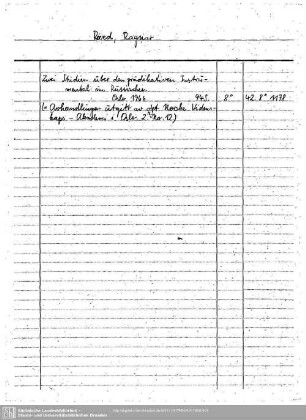 Røed, Ragnar
Zwei Studien über den prädikativen Instru-
mental im Russischen.
Oslo 1966 44S. 8° 42. 8° 1138
(= Avhandlinger utgitt av Det Norske Videns-
kaps - Akademi i Oslo. 2. Nr. 12)
Sächsische Landesbibliothek -
Staats- und Universitätsbibliothek Dresden